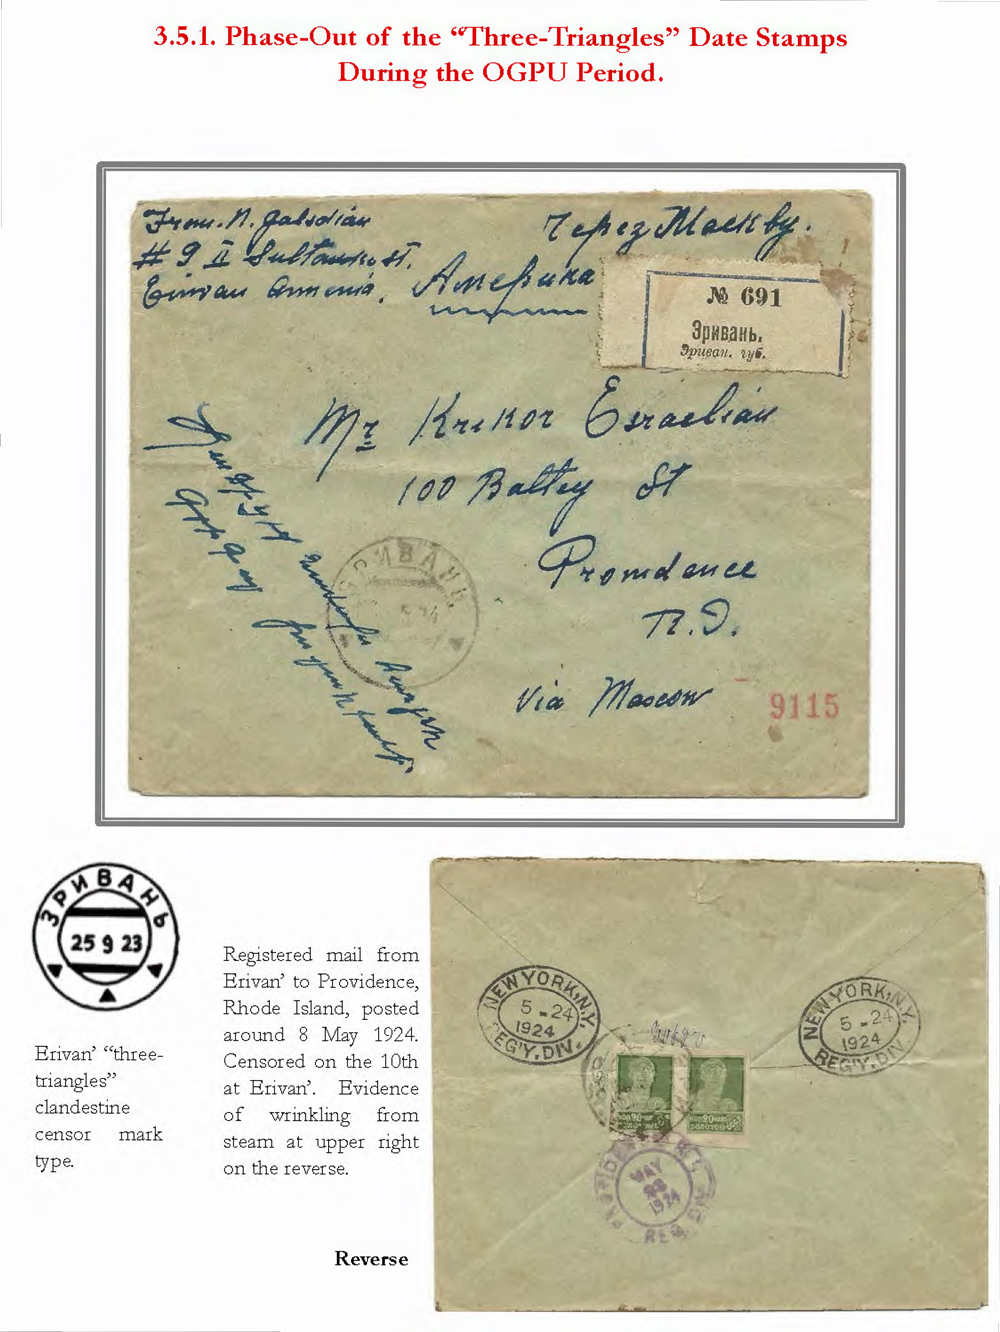 3.5.1. Phase-Out of the “Three-Triangles” Date Stamps
During the OGPU Period.
From. N.
# 9 II Sultansky st.
Erivan Armenia.
Через Москву.
Америка
№ 691
Эривань.
Эриван. губ.
Mr Krikor Esraelian
100 Battey St
Providence
R.I.
Via Moscow
9115
ЭРИВАНЬ
5 24
ЭРИВАНЬ
25 9 23
Erivan’ “three-
triangles”
clandestine
censor mark
type.
Registered mail from
Erivan’ to Providence,
Rhode Island, posted
around 8 May 1924.
Censored on the 10th
at Erivan’. Evidence
of wrinkling from
steam at upper right
on the reverse.
Reverse
NEW YORK, N.Y.
5-24
1924
REG'Y. DIV.
NEW YORK, N.Y.
5-24
1924
REG'Y. DIV.
PROVIDENCE R.I.
MAY
1924
REG.